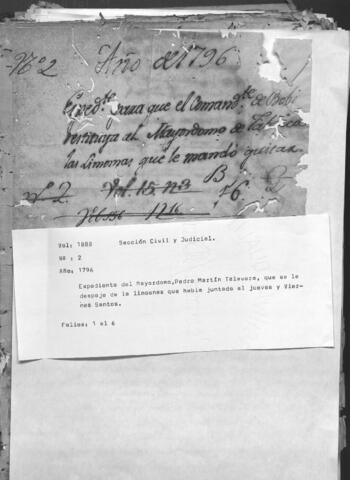 Nº 2 Año de 1796
Expedte. para que el Comandte. de Bobi
restituya al Mayordomo de Fabrica
las Limosnas que le mandó quitar
nº 2 Vol. 15. nº 3 B 6 2
Vol: 1888 Sección Civil y Judicial.
Nº : 2
Año, 1796
Expediente del Mayordomo,Pedro Martín Talavera, que se le
despoje de la limosna que habia juntado el jueves y Vier-
nes Santos.
Folios: 1 al 6